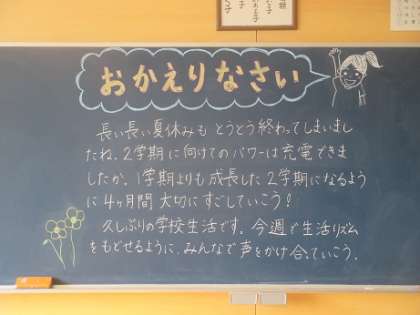 おかえりなさい
長い長い夏休みも とうとう終わってしまいまし
たね。2学期に向けてのパワーは充電できま
したか。1学期よりも成長した2学期になるよう
に4ヶ月間大切にすごしていこう!
久しぶりの学校生活です。今週で生活リズム
をもどせるように、みんなで声をかけ合っていこう。